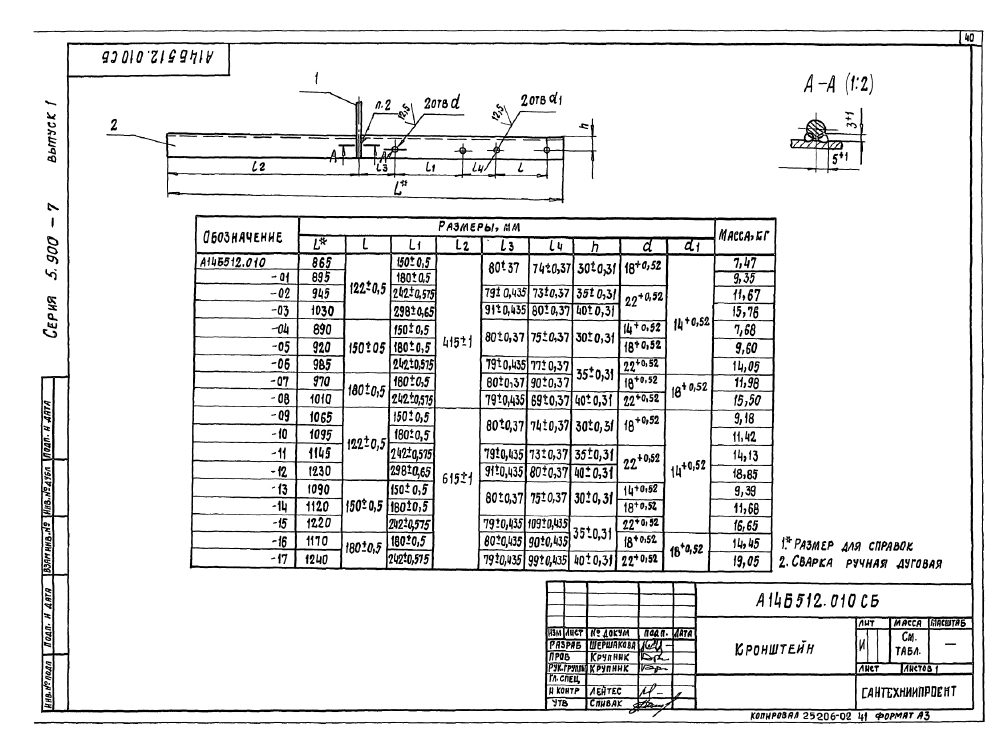 40
А14Б512.010 СБ
Серия 5.900-7 выпуск 1
1
2
п.2
12,5
2отв d
12,5
2отв d1
h
А
А
L2
L3
L1
L4
L
L*
А-А (1:2)
3+1
5+1
Обозначение Размеры, мм Масса, кг
L* L L1 L2 L3 L4 h d d1
А14Б512.010 865 122±0,5 150±0,5 415±1 80±37 74±0,37 30±0,31 18+0,52 14+0,52 7,47
-01 895 180±0,5 9,35
-02 945 242±0,575 79±0,435 73±0,37 35±0,31 22+0,52 11,67
-03 1030 298±0,65 91±0,435 80±0,37 40±0,31 15,76
-04 890 150±05 150±0,5 80±0,37 75±0,37 30±0,31 14+0,52 7,68
-05 920 180±0,5 18+0,52 9,60
-06 985 242±0,575 79±0,435 77±0,37 35±0,31 22+0,52 14,05
-07 970 180±0,5 180±0,5 80±0,37 90±0,37 18+0,52 18+0,52 11,98
-08 1010 242±0,575 79±0,435 89±0,37 40±0,31 22+0,52 15,50
-09 1065 122±0,5 150±0,5 615±1 80±0,37 74±0,37 30±0,31 18+0,52 14+0,52 9,18
-10 1095 180±0,5 11,42
-11 1145 242±0,575 79±0,435 73±0,37 35±0,31 22+0,52 14,13
-12 1230 298±0,65 91±0,435 80±0,37 40±0,31 18,85
-13 1090 150±0,5 150±0,5 80±0,37 75±0,37 30±0,31 14+0,52 9,39
-14 1120 180±0,5 18+0,52 11,68
-15 1220 242±0,575 79±0,435 109±0,435 35±0,31 22+0,52 16,65
-16 1170 180±0,5 180±0,5 80±0,435 90±0,435 18+0,52 18+0,52 14,45
-17 1240 242±0,575 79±0,435 99±0,435 40±0,31 22+0,52 19,05
1.* Размер для справок
2. Сварка ручная дуговая
Инв.№ подл Подп. и дата Взам инв.№ Инв.№ дубл Подп. и дата
А14Б512.010 СБ
Изм Лист № докум Подп. Дата
Разраб Шершакова
Пров Крупник
Рук.группы Крупник
Гл.спец
Н контр Лейтес
Утв Спивак
Кронштейн
Лит Масса Масштаб
И См. табл. —
Лист Листов 1
Сантехниипроект
Копировал 25206-02 41 Формат А3